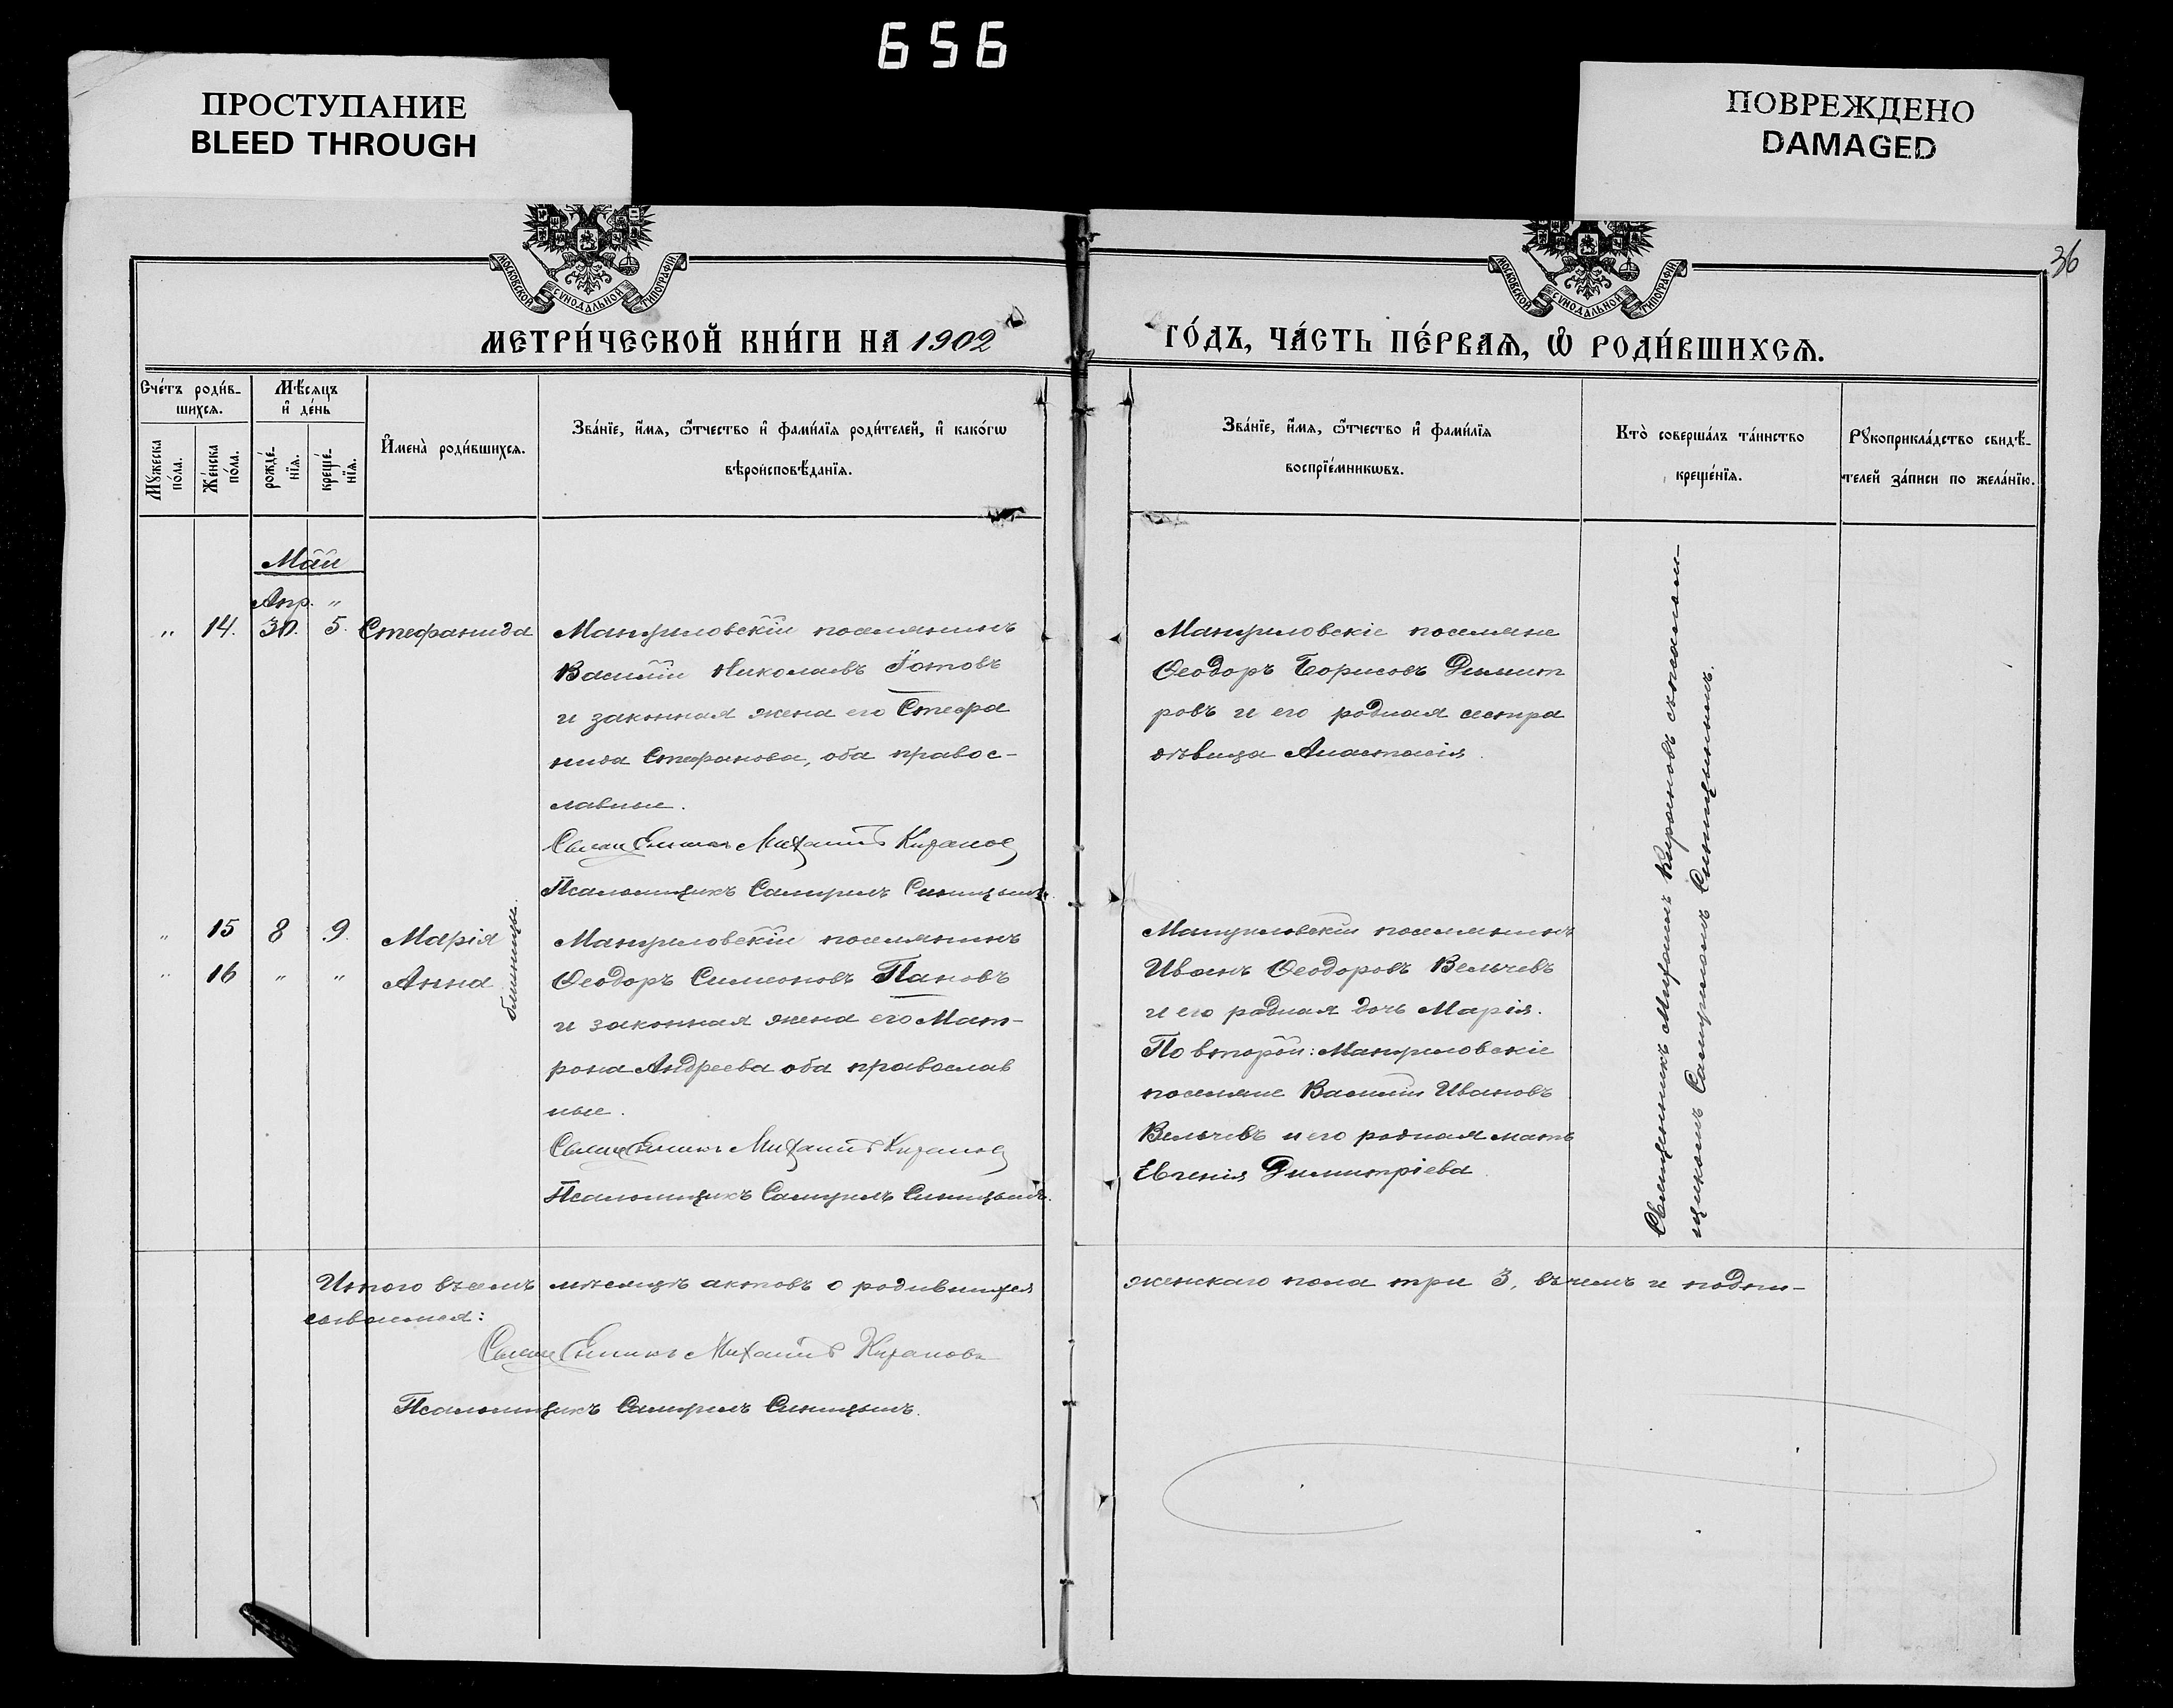 656
ПРОСТУПАНИЕ
BLEED THROUGH
ПОВРЕЖДЕНО
DAMAGED
36
МОСКОВСКОЙ СѴНОДАЛЬНОЙ ТИПОГРАФІИ
МОСКОВСКОЙ СѴНОДАЛЬНОЙ ТИПОГРАФІИ
МЕТРИ́ЧЕСКОЙ КНИ́ГИ НА 1902
ГО́ДЪ, ЧА́СТЬ ПЕ́РВАѦ, Ѡ҆ РОДИ́ВШИХСѦ.
Сче́тъ роди́в-
шихсѧ.
Мꙋ́жеска
по́ла.
Же́нска
по́ла.
Мѣ́сѧцъ
и҆ де́нь
рожде́-
нїѧ.
креще́-
нїѧ.
И҆мена̀ роди́вшихсѧ.
Зва́нїе, и҆́мѧ, ѻ҆́тчество и҆ фами́лїѧ роди́телей, и҆ како́гѡ
вѣроисповѣ́данїѧ.
Зва́нїе, и҆́мѧ, ѻ҆́тчество и҆ фами́лїѧ
воспрїе́мникѡвъ.
Кто̀ соверша́лъ та́инство
креще́нїѧ.
Рꙋкоприкла́дство свидѣ́-
телей за́писи по жела́нїю.
Май
Апр. "
" 14. 30. 5. Стефанида
Мануиловскій поселянинъ
Василій Николаевъ Готовъ
и законная жена его Стефа
нида Стефанова, оба правос-
лавные.
Священникъ Михаилъ Киранов
Псаломщикъ Самуилъ Синицынъ.
Мануиловскіе поселяне
Ѳеодоръ Борисовъ Димит
ровъ и его родная сестра
дѣвица Анастасія.
" 15 8 9. Марія
" 16 " " Анна
близницы.
Мануиловскій поселянинъ
Ѳеодоръ Симеоновъ Пановъ
и законная жена его Мат-
рона Андреева оба православ
ные.
Священникъ Михаилъ Киранов
Псаломщикъ Самуилъ Синицынъ.
Мануиловскій поселянинъ
Иванъ Ѳеодоровъ Вельчевъ
и его родная дочь Марія.
По второй: Мануиловскіе
поселяне Василій Ивановъ
Вельчевъ и его родная мать
Евгенія Димитріева
Священникъ Михаилъ Кирановъ съ псалом-
щикомъ Самуиломъ Синицынымъ.
Итого въ семъ мѣсяцѣ актовъ о родившихся женскаго пола три 3, въ чемъ и подпи-
сываемся:
Священникъ Михаилъ Кирановъ
Псаломщикъ Самуилъ Синицынъ.